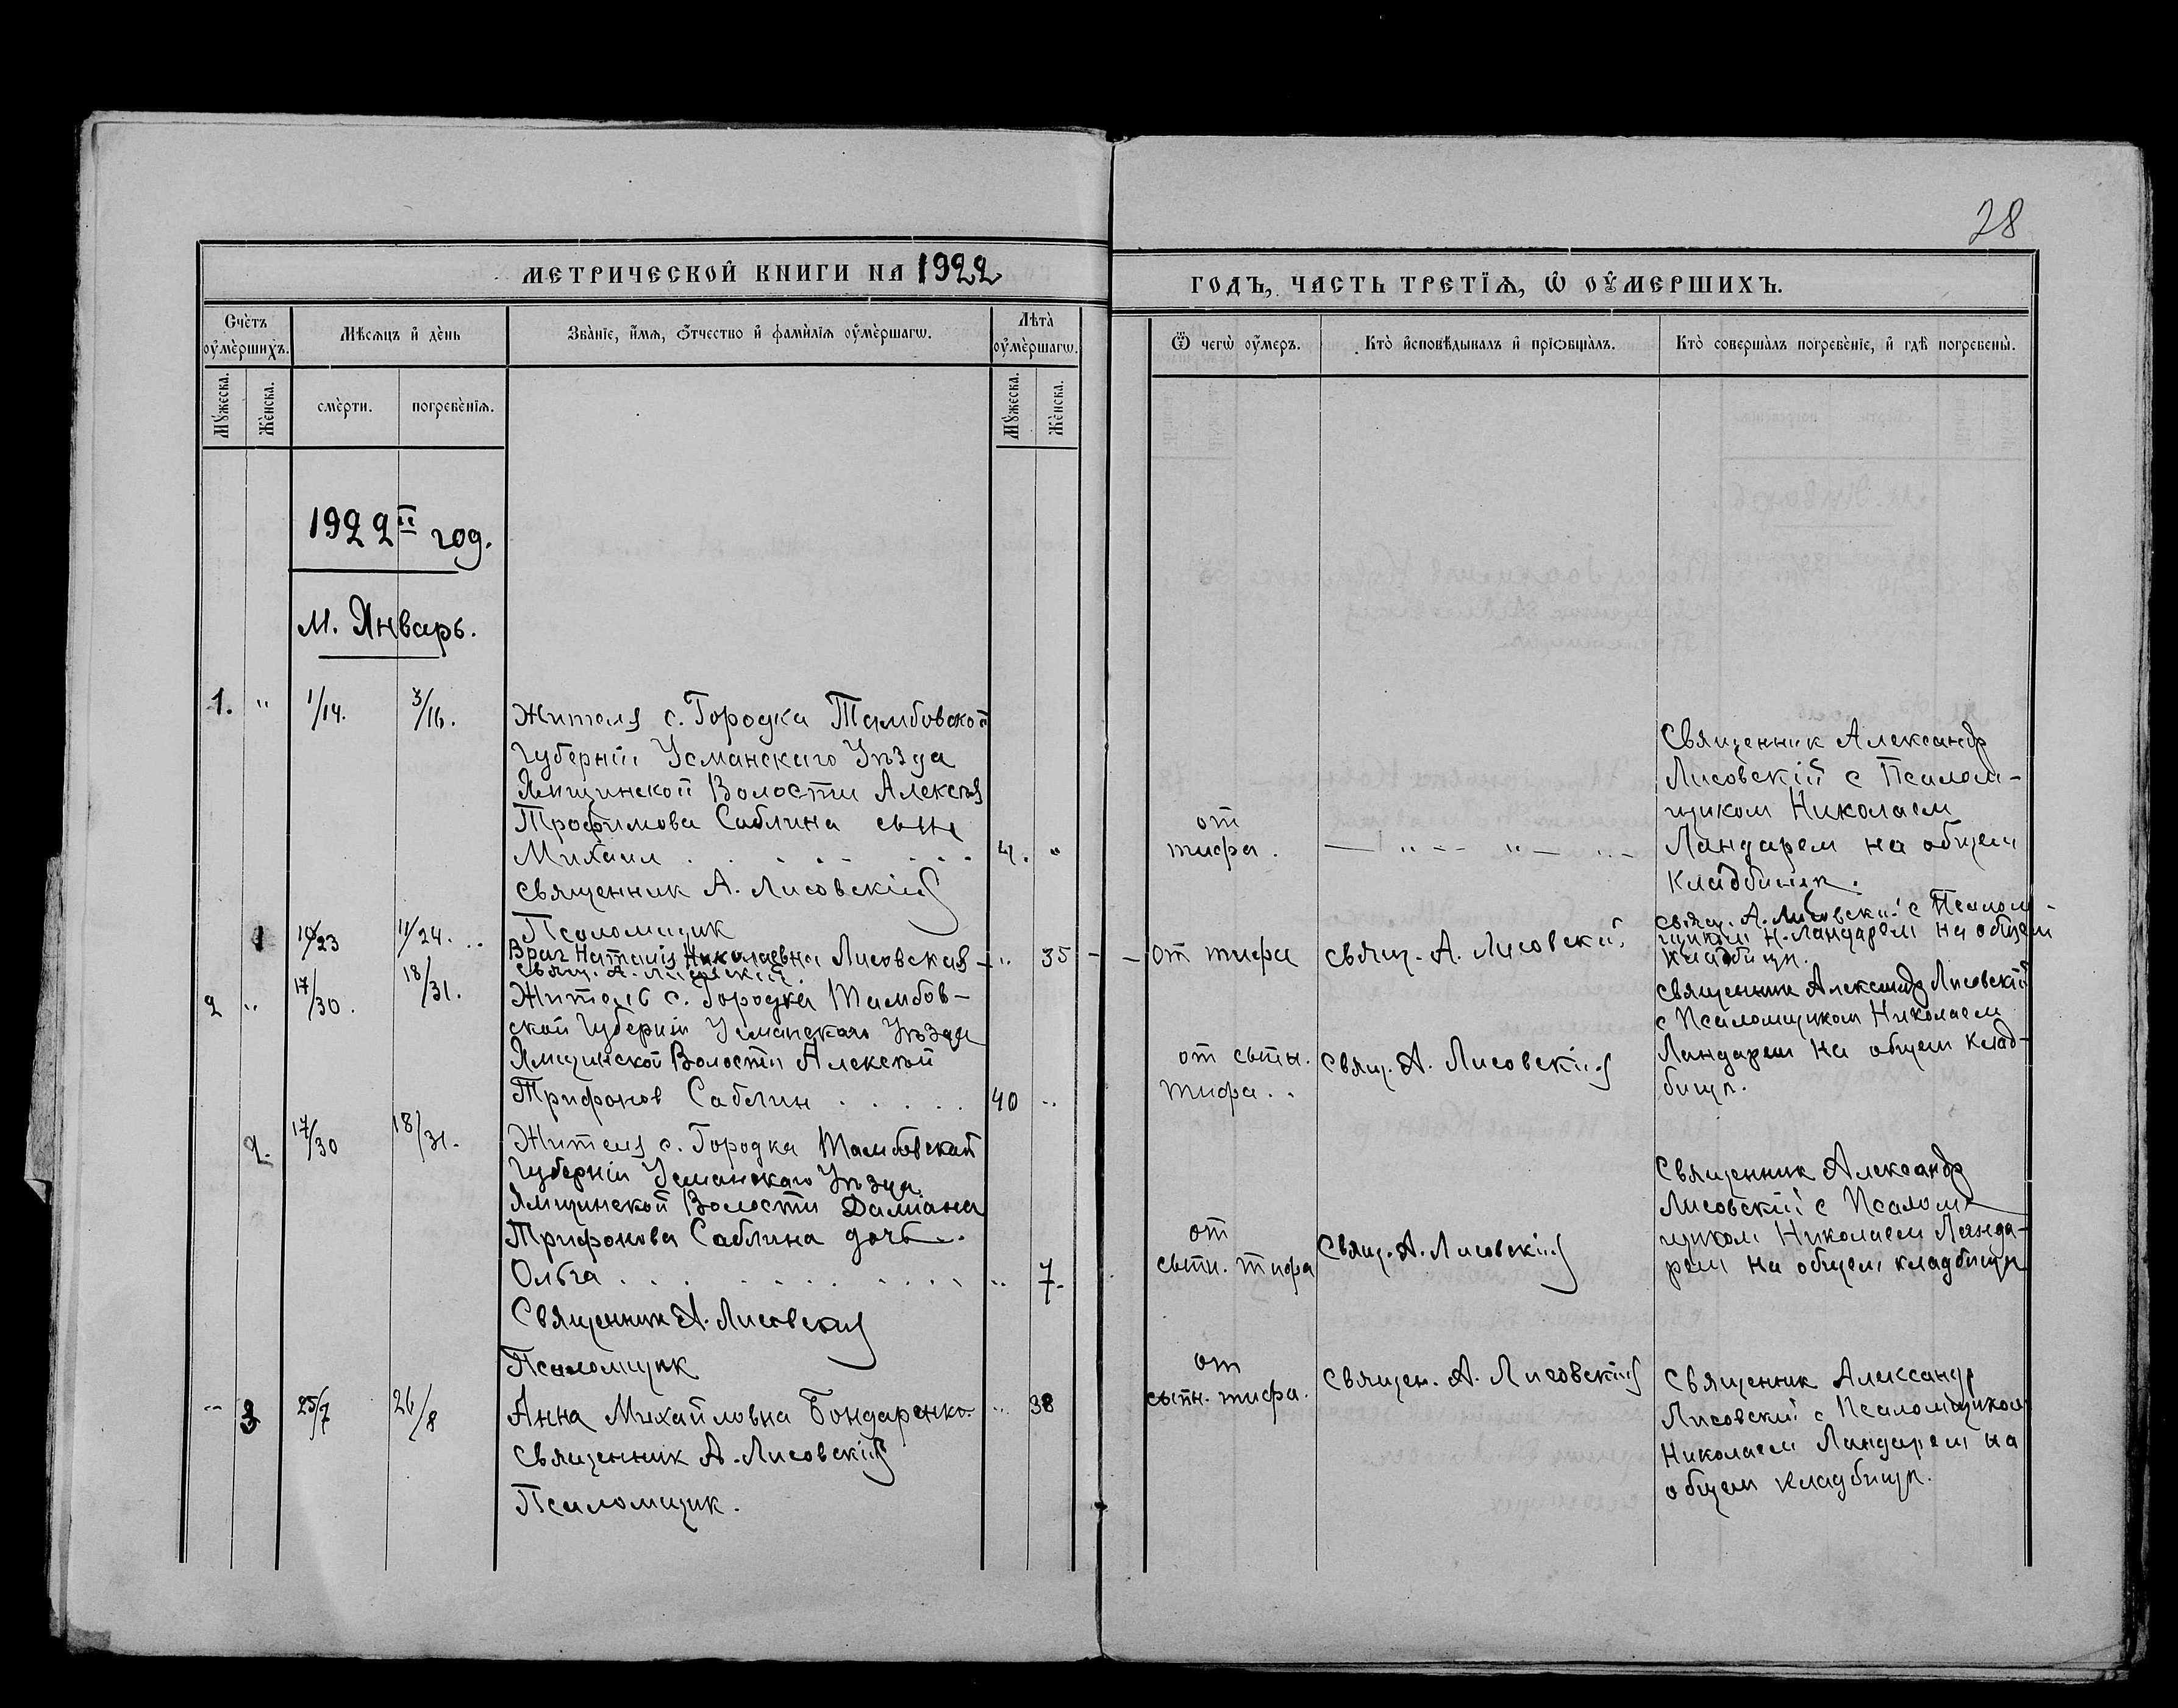 28
МЕТРИЧЕСКОЙ КНИГИ НА 1922
ГОДЪ, ЧАСТЬ ТРЕТІѦ, Ѡ ОУМЕРШИХЪ.
Счетъ оумершихъ.
Мѣсѧцъ и день
Званіе, имѧ, Отчество и фамиліѧ оумершагѡ.
Лѣта оумершагѡ.
Ѿ чегѡ оумеръ.
Кто исповѣдывалъ и пріѡбщалъ.
Кто совершалъ погребеніе, и гдѣ погребены.
Мужеска.
Женска.
смерти.
погребеніѧ.
Мужеска.
Женска.
1922й год.
М. Январь.
1. " 1/14. 3/16.
Жителя с. Городка Тамбовской
Губерніи Усманскаго Уѣзда
Ямщинской Волости Алексѣя
Трофимова Саблина сын
Михаил . . . . . . 4. "
Священник А. Лисовскій
Псаломщик
от
тифа.
— " — " — " —
Священник Александр
Лисовскій с Псалом-
щиком Николаем
Ландарем на общем
кладбищѣ.
1 10/23 11/24. . .
Врач Наталія Николаевна Лисовская — " 35 -
Свящ. А. Лисовскій.
- от тифа
Свящ. А. Лисовскій.
Свящ. А. Лисовскій с Псалом-
щиком Н. Ландарем на общем
кладбищѣ.
2 " 17/30. 18/31.
Житель с. Городка Тамбов-
ской Губерніи Усманскаго Уѣзда
Ямщинской Волости Алексѣй
Трифонов Саблин . . . . . 40 "
от сыпн.
тифа. .
Свящ. А. Лисовскій
Священник Александр Лисовскій
с Псаломщиком Николаем
Ландарем на общем Клад-
бищѣ.
2. 17/30 18/31.
Жителя с. Городка Тамбовской
Губерніи Усманскаго Уѣзда
Ямщинской Волости Даміана
Трифонова Саблина дочь .
Ольга . . . . . . . . " 7.
Священник А. Лисовскій
Псаломщик
от
сыпн. тифа
Свящ. А. Лисовскій
Священник Александр
Лисовскій с Псалом-
щиком Николаем Ланда-
рем на общем кладбищѣ
" 3 25/7 26/8
Анна Михайловна Бондаренко. " 38
Священник А. Лисовскій
Псаломщик.
от
сыпн. тифа.
Священ. А. Лисовскій
Священник Александр
Лисовскій с Псаломщиком
Николаем Ландарем на
общем кладбищѣ.